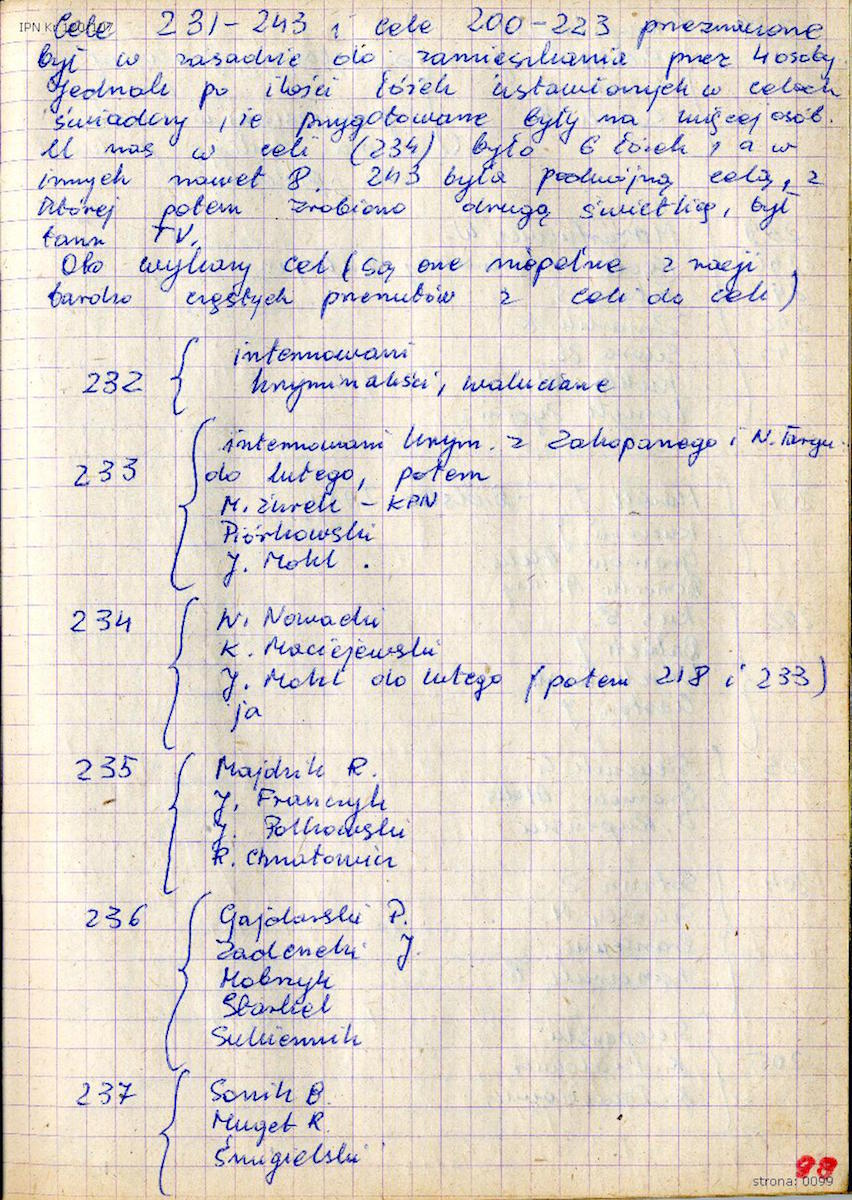 IPN Kr
Cele 231-243 i cele 200-223 przeznaczone
był w zasadzie do zamieszkania przez 4 osoby.
Jednak po ilości łóżek ustawionych w celach
świadczy, że przygotowane były na więcej osób.
U nas w celi (234) było 6 łóżek, a w
innych nawet 8. 243 była podwójną celą, z
której potem zrobiono drugą świetlicę, był
tam TV.
Oto wykazy cel (są one niepełne z racji
bardzo częstych przerzutów z celi do celi)
232 { internowani
kryminaliści, waluciarze
233 { internowani krym. z Zakopanego i N. Targu
do lutego, potem
M. Żurek - KPN
Piórkowski
J. Mohl.
234 { W. Nowacki
K. Maciejewski
J. Mohl do lutego (potem 218 i 233)
ja
235 { Majdzik R.
J. Franczyk
J. Polkowski
R. Chnatowicz
236 { Gajdarski P.
Zadencki J.
Mobrzyk
Skarbel
Sukiennik
237 { Sonik B.
Muget R.
Śmigielski
98
strona: 0099